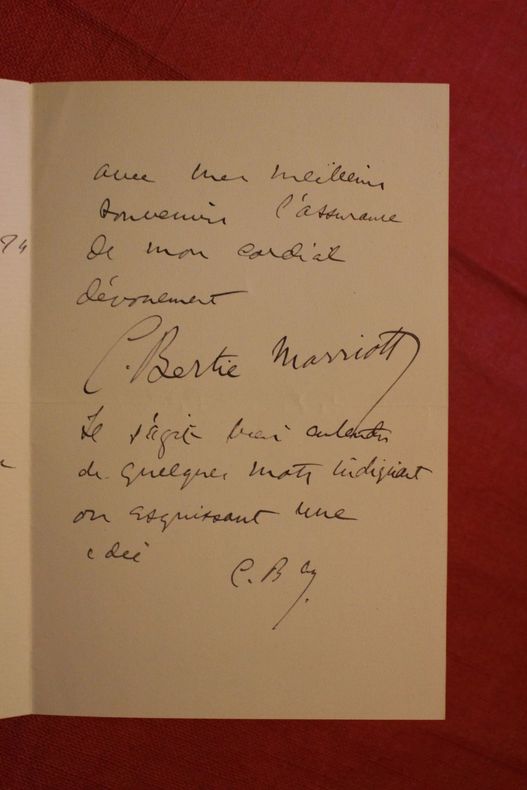 avec mes meilleurs
souvenirs l'assurance
de mon cordial
dévouement
C. Bertie Marriott
Il s'agit bien entendu
de quelques mots indiquant
ou esquissant une
idée
C. B M
94